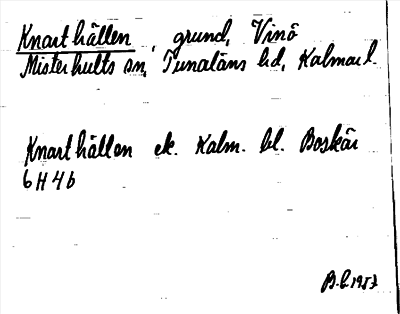 Knarthällen, grund, Vinö
Misterhults sn, Tunaläns hd, Kalmar l.
Knarthällen ek. Kalm. bl. Boskär
6H4b
1957